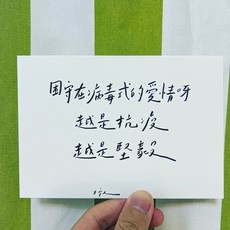 固守在病毒式的愛情呀
越是抗疫
越是堅毅